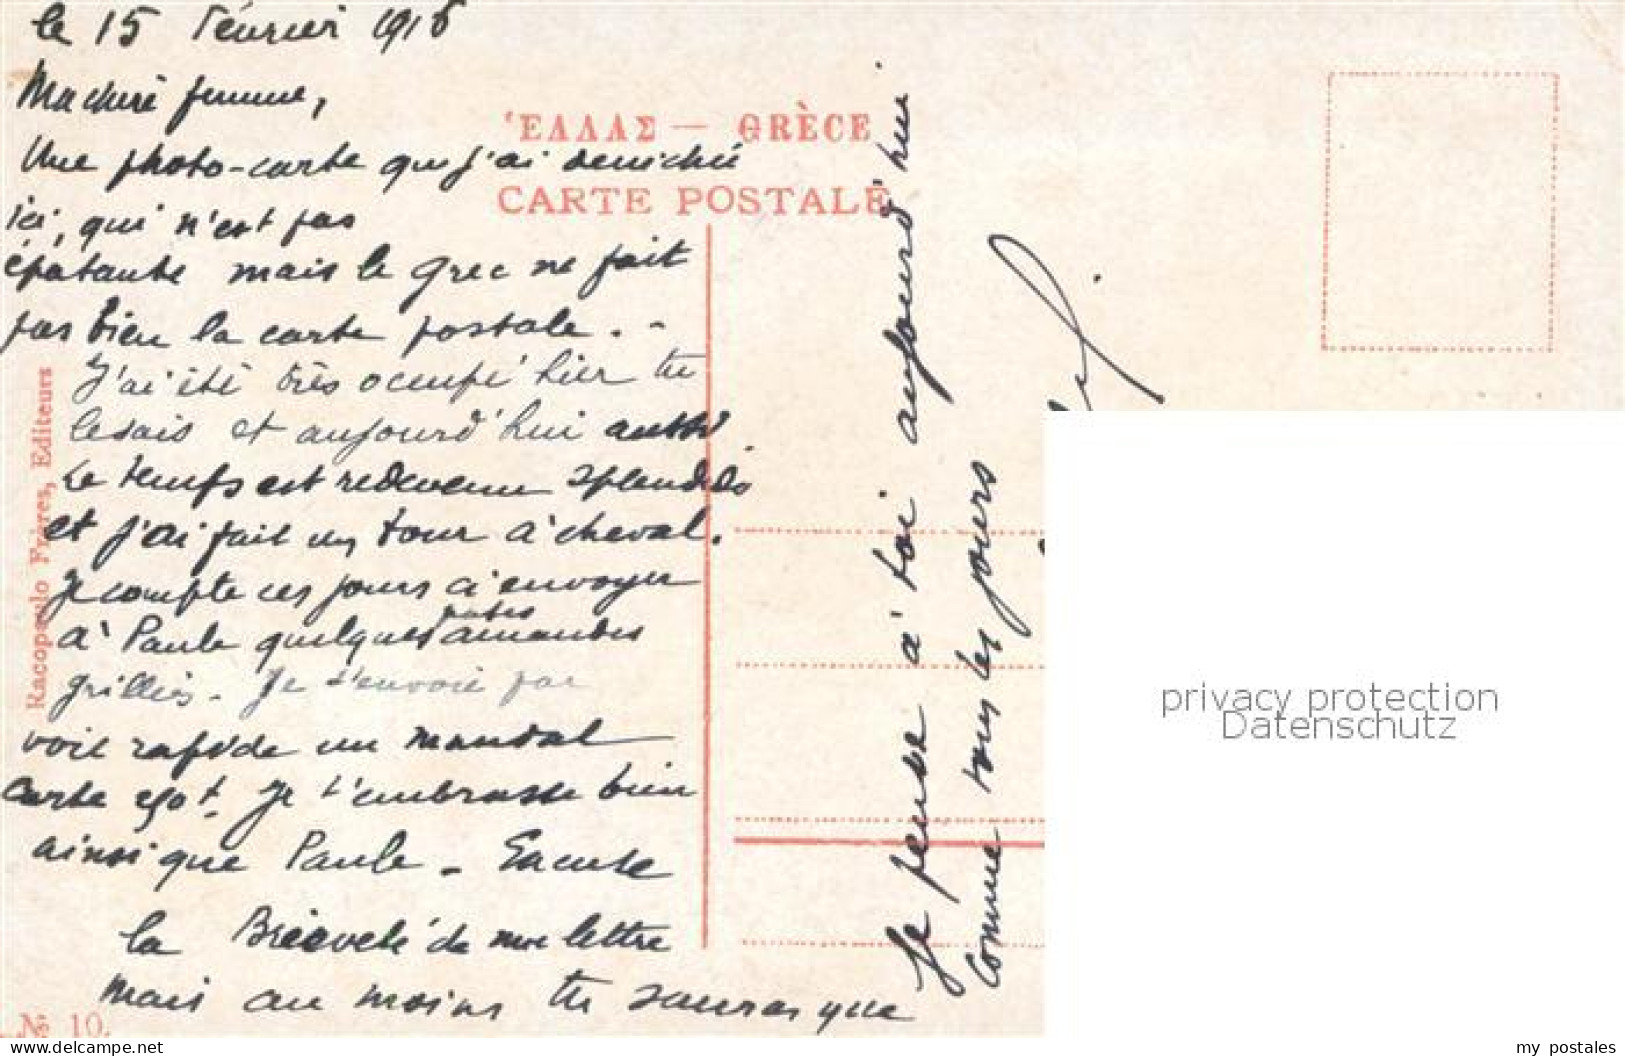 le 15 février 1918
Ma chère femme,
'ΕΛΛΑΣ — GRÈCE
CARTE POSTALE
Une photo-carte que j'ai denichée
ici, qui n'est pas
épatante mais le grec ne fait
pas bien la carte postale. -
J'ai été très occupé hier tu
le sais et aujourd'hui aussi.
Le temps est redevenu splendide
et j'ai fait un tour à cheval.
Je compte ces jours ci envoyer
à Paule quelques amandes
grillées. Je t'envoie par
voie rapide un mandat
carte Je t'embrasse bien
ainsi que Paule - Excuse
la Brièveté de ma lettre
mais au moins tu sauras que
Je pense à toi aujourd'hui
comme tous les jours
Racopoulo Frères, Editeurs
№ 10.
privacy protection
Datenschutz
www.delcampe.net
my_postales